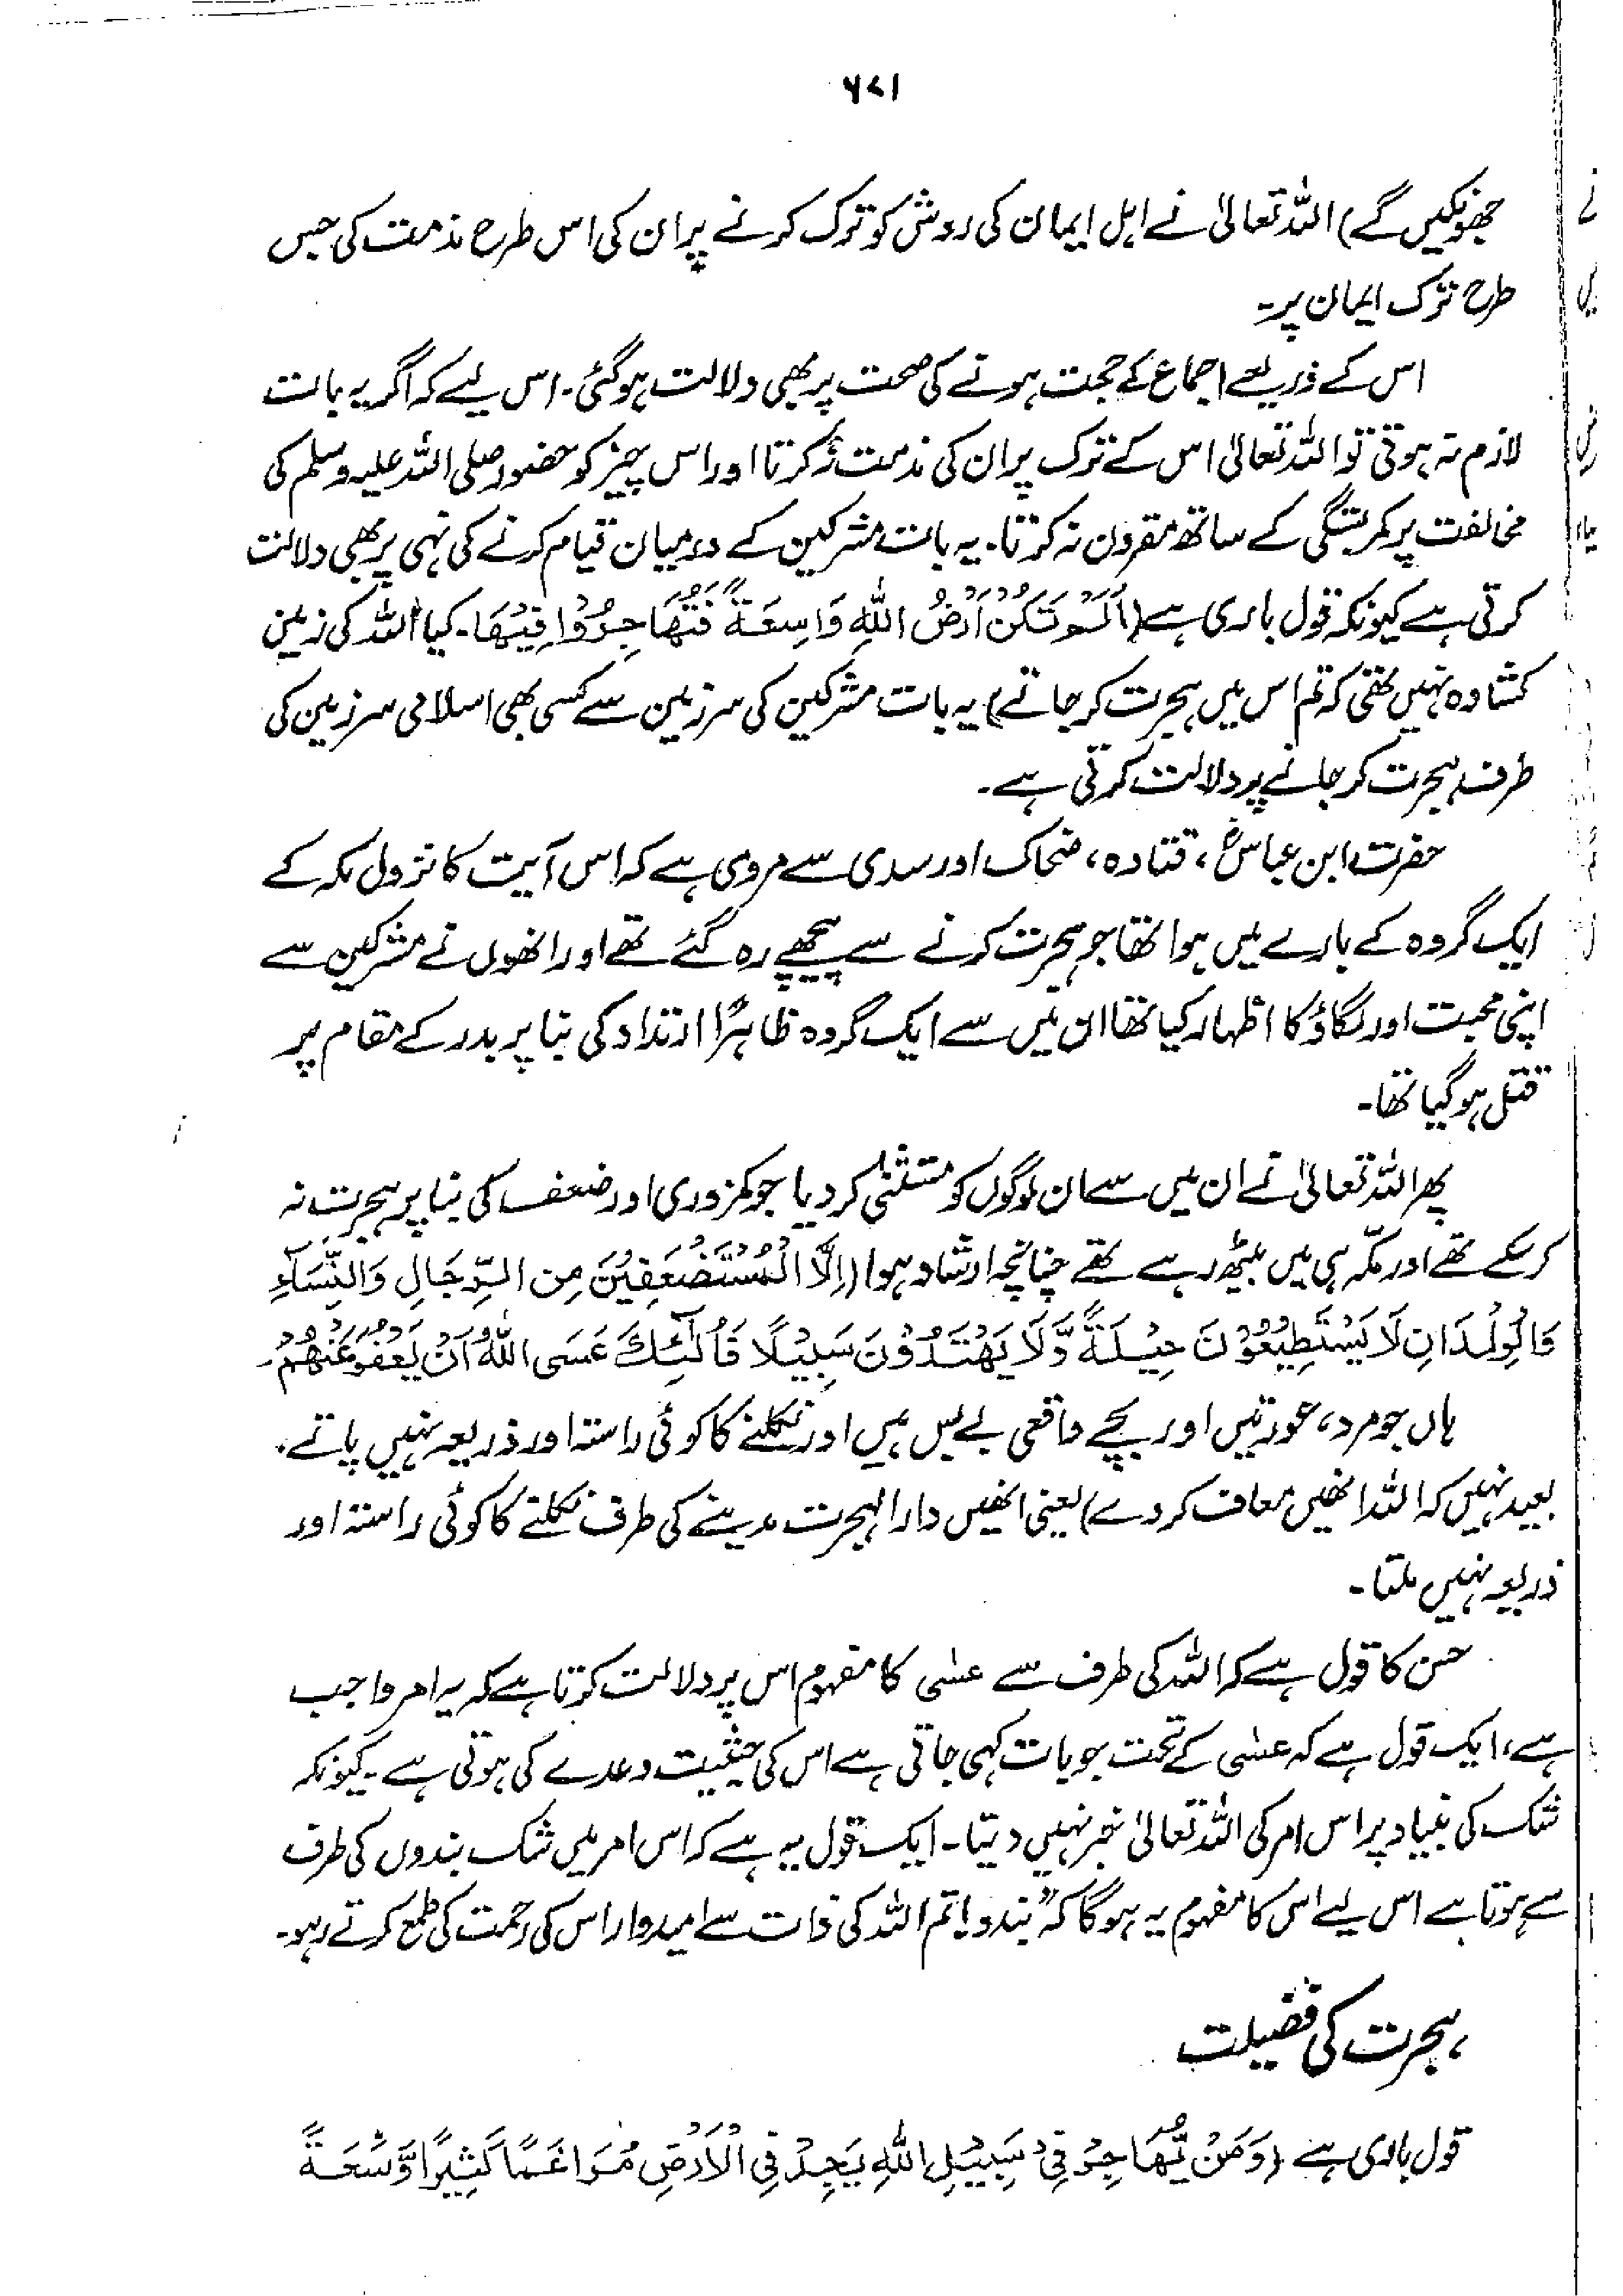 ۶۷۱
جھونکیں گے) اللہ تعالیٰ نے اہل ایمان کی روش کو ترک کرنے پر ان کی اس طرح مذمت کی جس
طرح ترک ایمان پر۔
اس کے ذریعے اجماع کے حجت ہونے کی صحت پر بھی دلالت ہوگئی۔ اس لیے کہ اگر یہ بات
لازم نہ ہوتی تو اللہ تعالیٰ اس کے ترک پر ان کی مذمت نہ کرتا اور اس چیز کو حضور صلی اللہ علیہ وسلم کی
مخالفت پر کمربستگی کے ساتھ مقرون نہ کرتا۔ یہ بات مشرکین کے درمیان قیام کرنے کی نہی پر بھی دلالت
کرتی ہے کیونکہ قول باری ہے (اَلَمْ تَکُنْ اَرْضُ اللّٰهِ وَاسِعَةً فَتُهَاجِرُوْا فِيْهَا۔ کیا اللہ کی زمین
کشادہ نہیں تھی کہ تم اس میں ہجرت کر جاتے) یہ بات مشرکین کی سرزمین سے کسی بھی اسلامی سرزمین کی
طرف ہجرت کر جانے پر دلالت کرتی ہے۔
حضرت ابن عباسؓ، قتادہ، ضحاک اور سدی سے مروی ہے کہ اس آیت کا نزول مکہ کے
ایک گروہ کے بارے میں ہوا تھا جو ہجرت کرنے سے پیچھے رہ گئے تھے اور انھوں نے مشرکین سے
اپنی محبت اور لگاؤ کا اظہار کیا تھا ان میں سے ایک گروہ ظاہرًا ارتداد کی بنا پر بدر کے مقام پر
قتل ہو گیا تھا۔
پھر اللہ تعالیٰ نے ان میں سے ان لوگوں کو مستثنیٰ کر دیا جو کمزوری اور ضعف کی بنا پر ہجرت نہ
کر سکے تھے اور مکّہ ہی میں بیٹھ رہے تھے چنانچہ ارشاد ہوا (اِلَّا الْمُسْتَضْعَفِيْنَ مِنَ الرِّجَالِ وَالنِّسَآءِ
وَالْوِلْدَانِ لَا يَسْتَطِيْعُوْنَ حِيْلَةً وَّلَا يَهْتَدُوْنَ سَبِيْلًا فَاُولٰٓئِكَ عَسَى اللّٰهُ اَنْ يَّعْفُوَ عَنْهُمْ۔
ہاں جو مرد، عورتیں اور بچے واقعی بے بس ہیں اور نکلنے کا کوئی راستہ اور ذریعہ نہیں پاتے۔
بعید نہیں کہ اللہ انھیں معاف کر دے) یعنی انھیں دار الہجرت مدینے کی طرف نکلنے کا کوئی راستہ اور
ذریعہ نہیں ملتا۔
حسن کا قول ہے کہ اللہ کی طرف سے عسٰی کا مفہوم اس پر دلالت کرتا ہے کہ یہ امر واجب
ہے، ایک قول ہے کہ عسٰی کے تحت جو بات کہی جاتی ہے اس کی حیثیت وعدے کی ہوتی ہے۔ کیونکہ
شک کی بنیاد پر اس امر کی اللہ تعالیٰ خبر نہیں دیتا۔ ایک قول یہ ہے کہ اس امر میں شک بندوں کی طرف
سے ہوتا ہے اس لیے اس کا مفہوم یہ ہوگا کہ "بندو! تم اللہ کی ذات سے امیدوار اس کی رحمت کی طمع کرتے رہو۔
ہجرت کی فضیلت
قول باری ہے (وَمَنْ يُّهَاجِرْ فِيْ سَبِيْلِ اللّٰهِ يَجِدْ فِي الْاَرْضِ مُرَاغَمًا كَثِيْرًا وَّسَعَةً